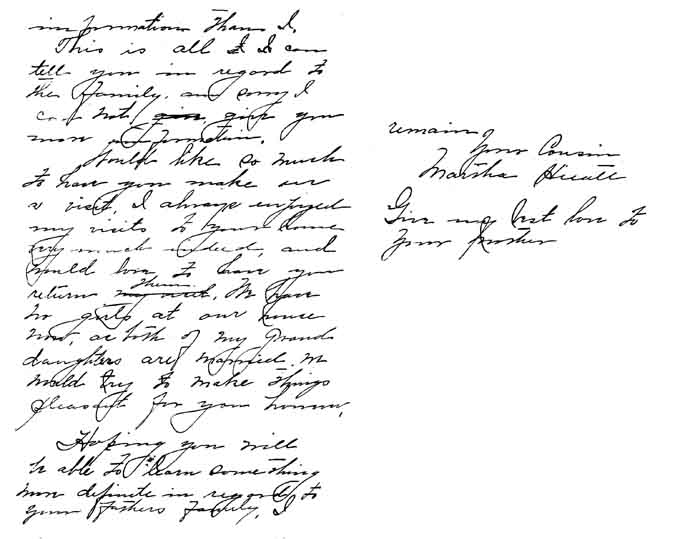 information than I.
This is all I can
tell you in regard to
the family. am sorry I
can not give you
more information.
Would like so much
to have you make us
a visit, I always enjoyed
my visits to your home
very much indeed, and
would love to have you
return them. We have
no girls at our house
now, as both of my Grand
daughters are married. We
would try to make things
pleasant for you however.
Hoping you will
be able to learn something
more definite in regard to
your fathers family, I
remain
Your Cousin
Martha
Give my best love to
your mother